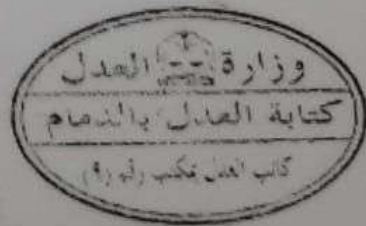 وزارة العدل
كتابة العدل بالدمام
كاتب العدل مكتب رقم (٩)